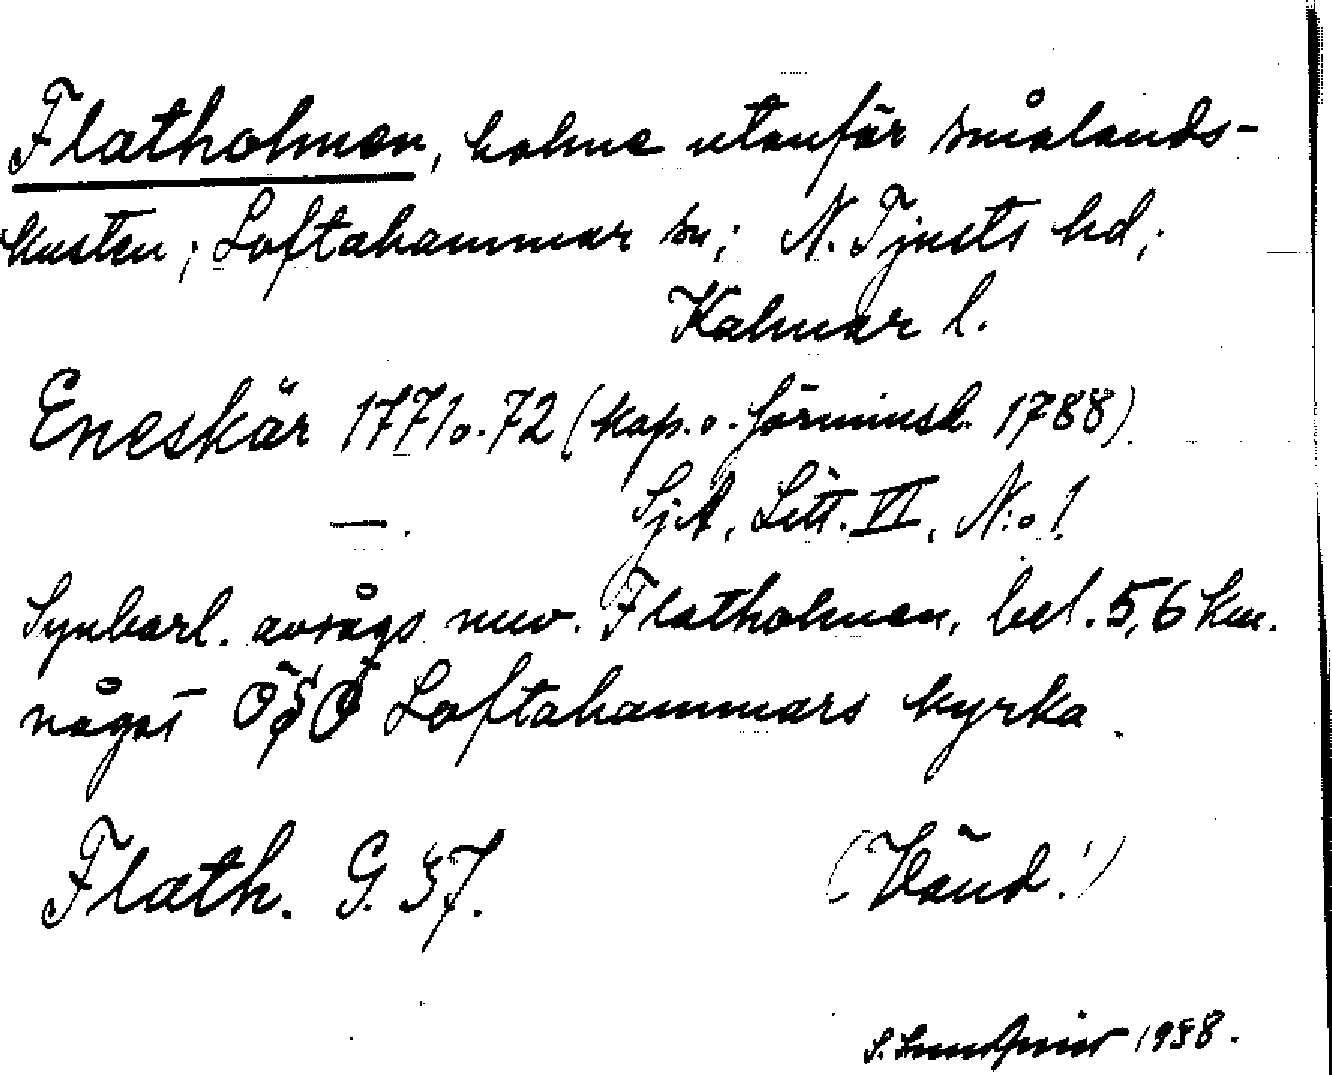 Flatholmen, holme utanför smålands-
kusten; Loftahammar sn; N. Tjusts hd;
Kalmar l.
Eneskär 1771 o. 72 (kop. o. förminsk. 1788)
SjA, Litt. VI, N:o 1
—.
Synbarl. avsågs nuv. Flatholmen, bel. 5,6 km.
något OSO Loftahammars kyrka.
Flath. G. 37.
(Vänd!)
S. 1938.